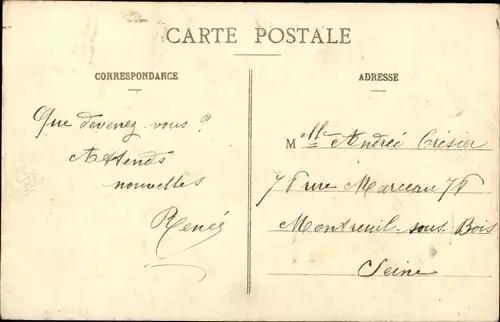 CARTE POSTALE
CORRESPONDANCE
Que devenez-vous?
Attends
nouvelles
Renée
ADRESSE
M lle André Crésier
78 rue Marceau 78
Montreuil-sous-Bois
Seine